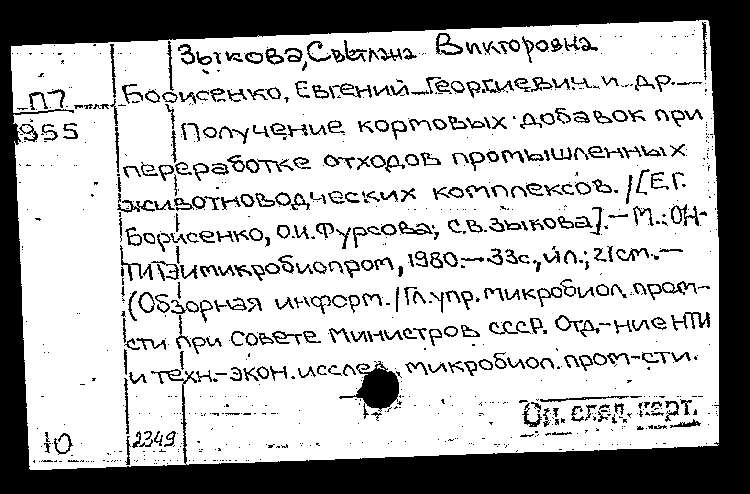 Зыкова, Светлана Викторовна
П7 Борисенко, Евгений Георгиевич и др.
955 Получение кормовых добавок при
переработке отходов промышленных
животноводческих комплексов. / [Е.Г.
Борисенко, О.И. Фурсова, С.В. Зыкова]. — М.: ОН-
ТИТЭИмикробиопром, 1980. — 33с., ил.; 21 см. —
(Обзорная информ. / Гл. упр. микробиол. пром-
сти при Совете Министров СССР. Отд-ние НТИ
и техн.-экон. исслед. микробиол. пром-сти.
См. след. карт.
10 2349